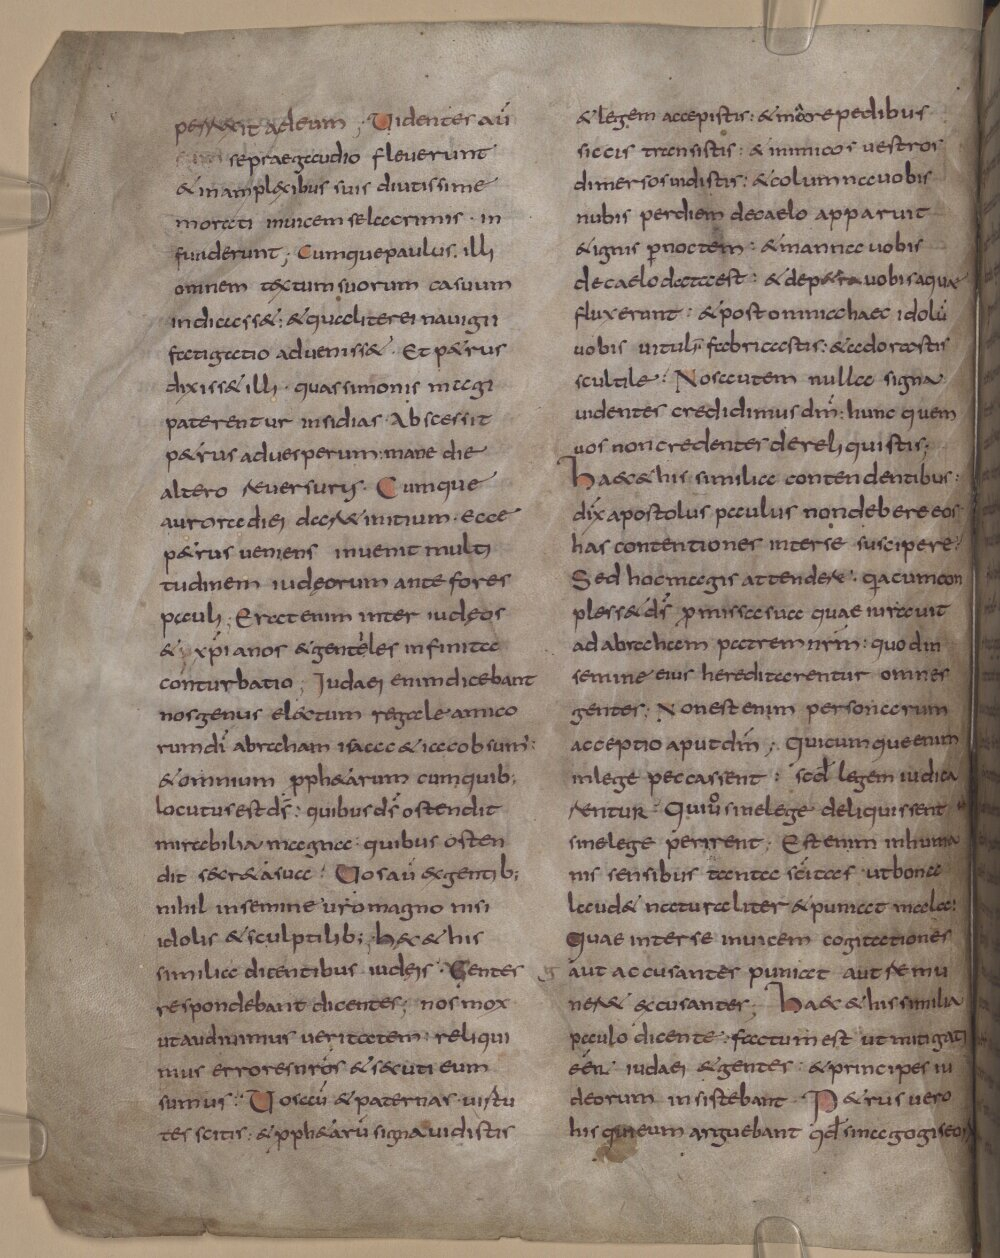 perrexit ad eum ; Videntes aū
sepraegaudio fleverunt
& inamplexibus suis diutissime
morati invicem selacrimis · in
fuderunt ; Cumquepaulus illi
omnem textumsuorum casuum
indicass& : & qualiterei navigii
fatigatio adveniss& · Et p&rus
dixiss& illi · quassimonis magi
paterentur insidias · Abscessit
p&rus advesperum : mane die
altero reversurus · Cumque
aurorae diei dar& initium · Ecce
p&rus veniens invenit multi
tudinem iudeorum ante fores
pauli ; Erat enim inter iudęos
& xp̄ianos & gentiles infinita
conturbatio ; Iudaei enimdicebant
nosgenus electum regale amico
rum dī abraham isaac & iacob sum᷒ :
& omnium pph&arum cumquib;
locutusest dS̄ : quibus dS̄ ostendit
mirabilia magna · quibus osten
dit secr&asua : Vos aū exgentib;
nihil insemine vr̄o magno nisi
idolis & sculptilib; ; haec & his
similia dicentibus iudeis · Gentes
respondebant dicentes ; nosmox
utaudivimus veritatem · reliqui
mus erroresnr̄os & secuti eum
sumus : Vos aū & paternas virtu
tes scitis : & pph&arū signa vidistis
& legem accepistis : & mare pedibus
siccis transistis : & inimicos vestros
dimersosvidistis : & columna vobis
nubis perdiem decaelo apparuit
& ignis pnoctem : & manna vobis
decaelo data est : & dep&ra vobis aquae
fluxerunt : & post omnia haec idolū
vobis vitulī fabricastis : & adorastis
sculptile : Nosautem nulla signa
videntes credidimus dm̄ : hunc quem
vos noncredentes dereliquistis ;
haec & his similia contendentibus :
dix̄ apostolus paulus nondebere eos
has contentiones interse suscipere :
Sed hocmagis attendere : quia cumcom
pless& dS̄ pmissa sua quae iuravit
ad abraham patrem nrm̄ : quodin
semine eius hereditarentur omnes
gentes ; Nonest enim personarum
acceptio aput dm̄ ; Quicumqueenim
inlege peccassent : scd̄ legem iudica
rentur · Quiv̊ sinelege deliquissent
sinelege perirent ; Est enim inhuma
nis sensibus tanta scītas · utbona
laud& naturaliter & puniat mala :
Quae interse invicem cogitationes
aut accusantes puniat aut remu
ner& excusantes ; haec & his similia
paulo dicente · factum est utmitigati
ēēn̄ iudaei & gentes · & principes iu
deorum insistebant · P&rus vero
his quieum arguebant qd̄ sinagogis eoꝝ